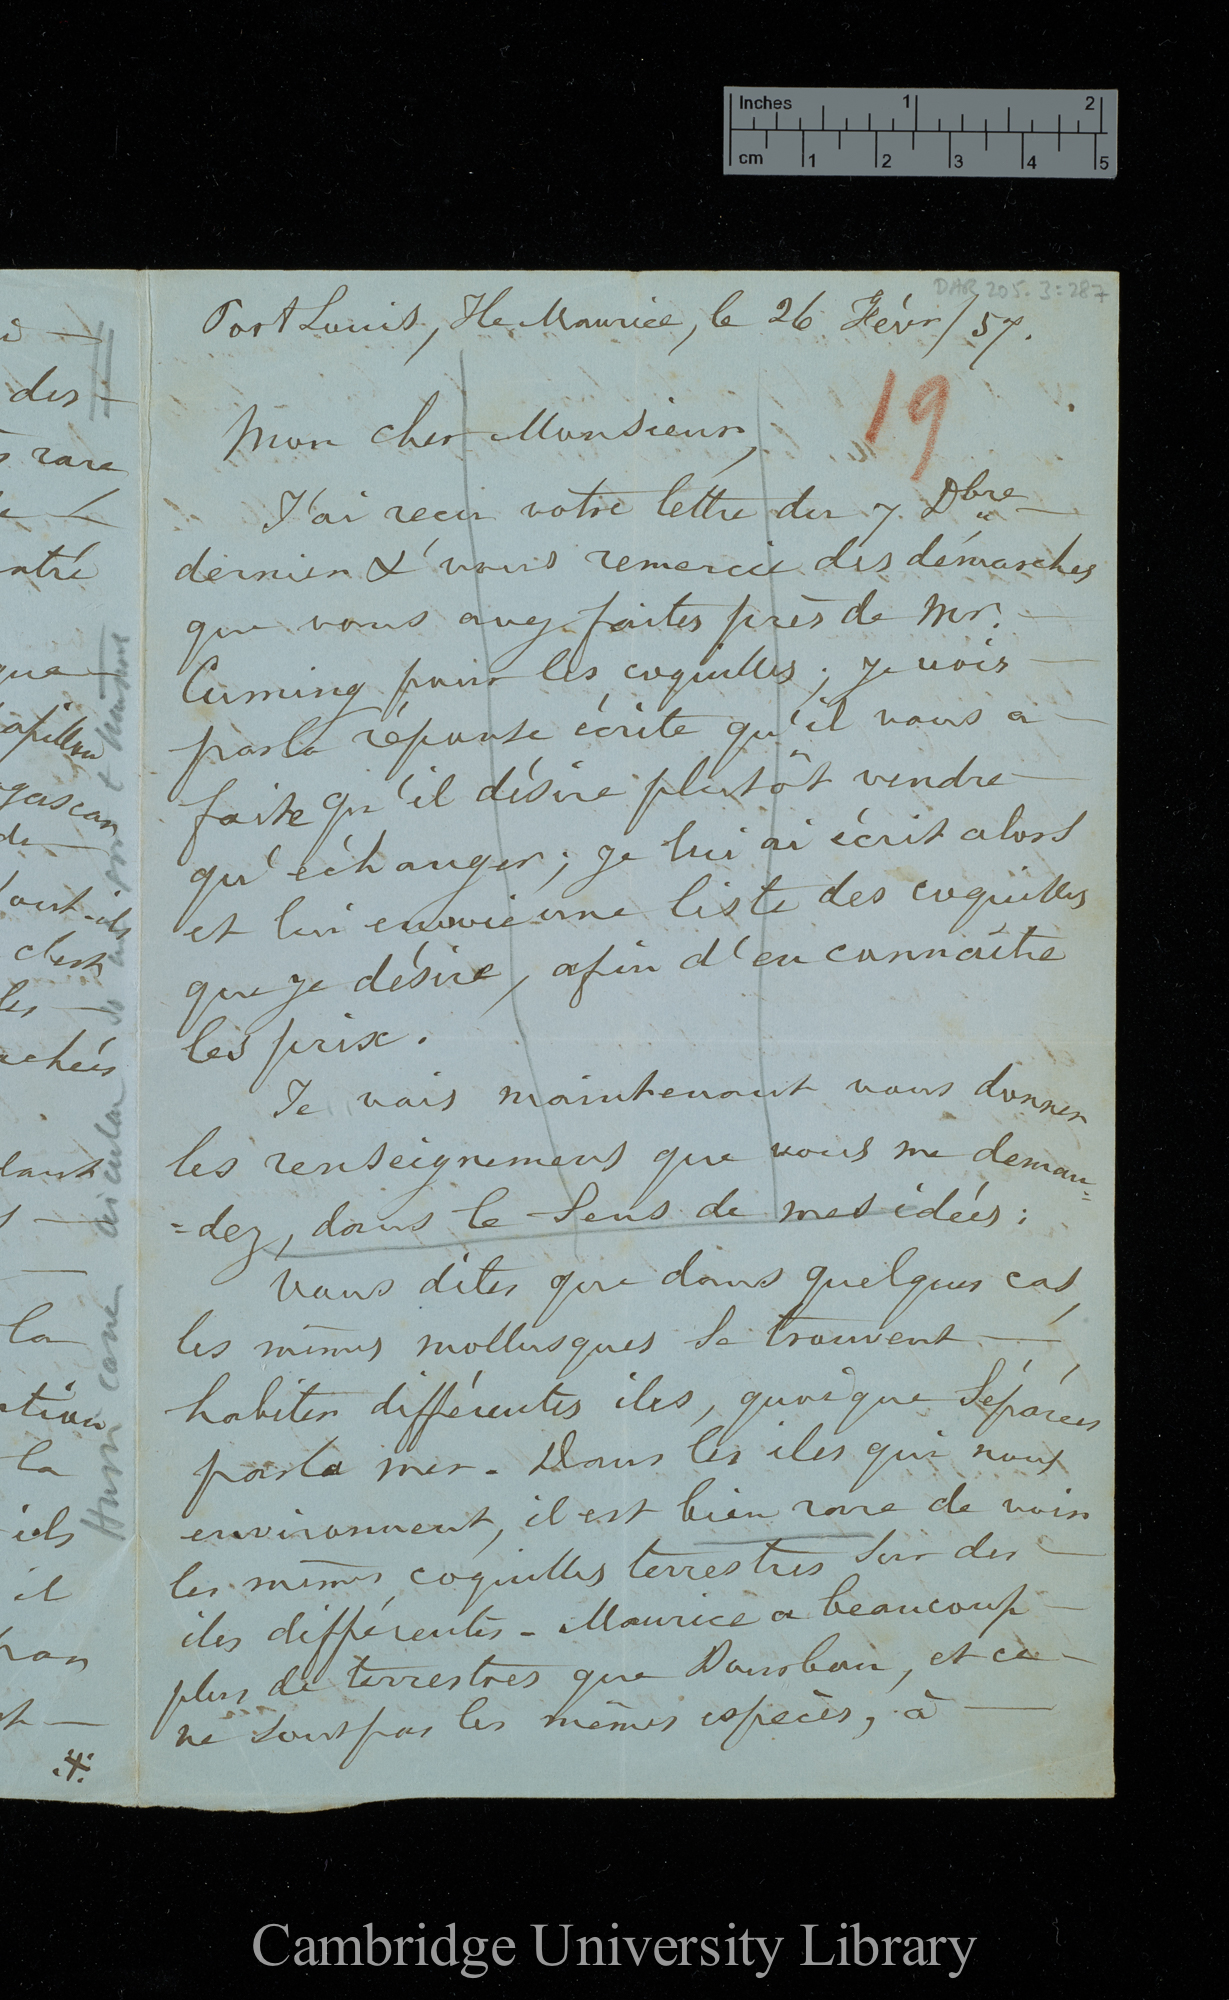 Inches 1 2
cm 1 2 3 4 5
DAR 205.3:287
Port Louis, Ile Maurice, le 26 Févr/57.
19
Mon cher Monsieur,
J'ai reçu votre lettre du 7 Dbre
dernier & vous remercie des démarches
que vous avez faites près de Mr.
Cuming pour les coquilles; je vois
par la réponse écrite qu'il vous a
faite qu'il désire plutôt vendre
qu'échanger; je lui ai écrit alors
et lui envoie une liste des coquilles
que je désire, afin d'en connaître
les prix.
Je vais maintenant vous donner
les renseignemens que vous me deman-
=dez, dans le sens de mes idées:
Vous dites que dans quelques cas,
les mêmes mollusques se trouvent
habiter différentes iles, quoique séparées
par la mer. Dans les iles qui nous
environnent, il est bien rare de voir
les mêmes coquilles terrestres sur des
iles différentes. Maurice a beaucoup
plus de terrestres que Bourbon, et ce
ne sont pas les mêmes espèces, à
des
rare
ntré
que
apillon
gascar
de
ont-ils
c'est
les
achées
lant
la
ation
la
ils
il
par
Cambridge University Library